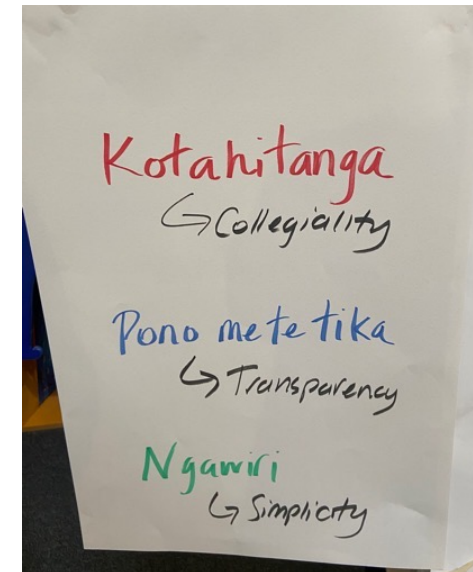 Kotahitanga
↳ Collegiality
Pono me te tika
↳ Transparency
Ngawiri
↳ Simplicity